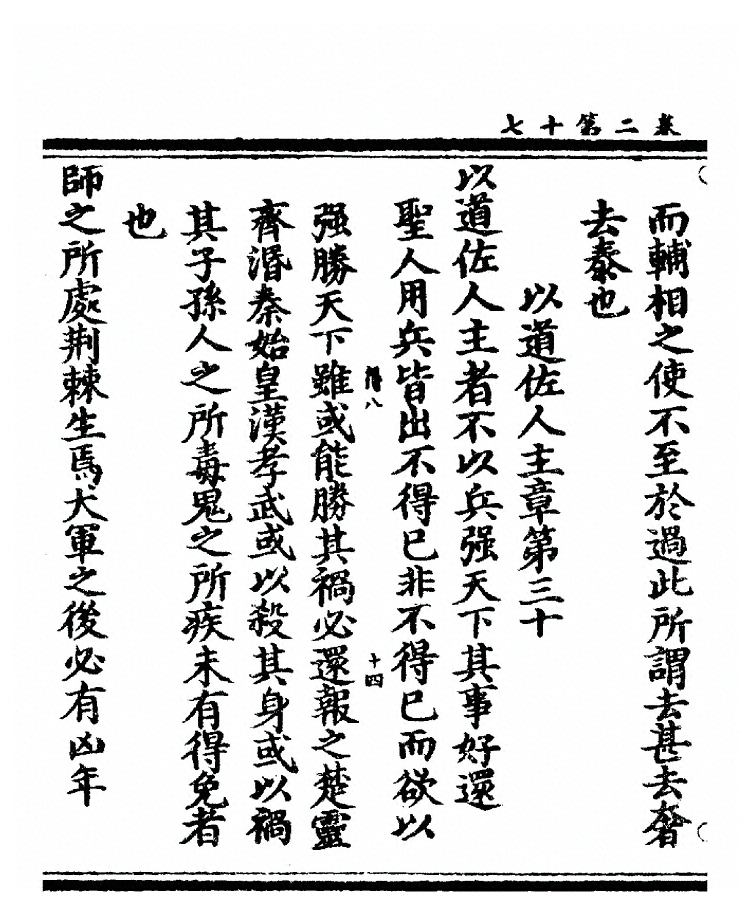 卷二第十七
而輔相之使不至於過此所謂去甚去奢
去泰也
以道佐人主章第三十
以道佐人主者不以兵强天下其事好還
聖人用兵皆出不得已非不得已而欲以
得八
十四
强勝天下雖或能勝其禍必還報之楚靈
齊湣秦始皇漢孝武或以殺其身或以禍
其子孫人之所毒鬼之所疾未有得免者
也
師之所處荆棘生焉大軍之後必有凶年